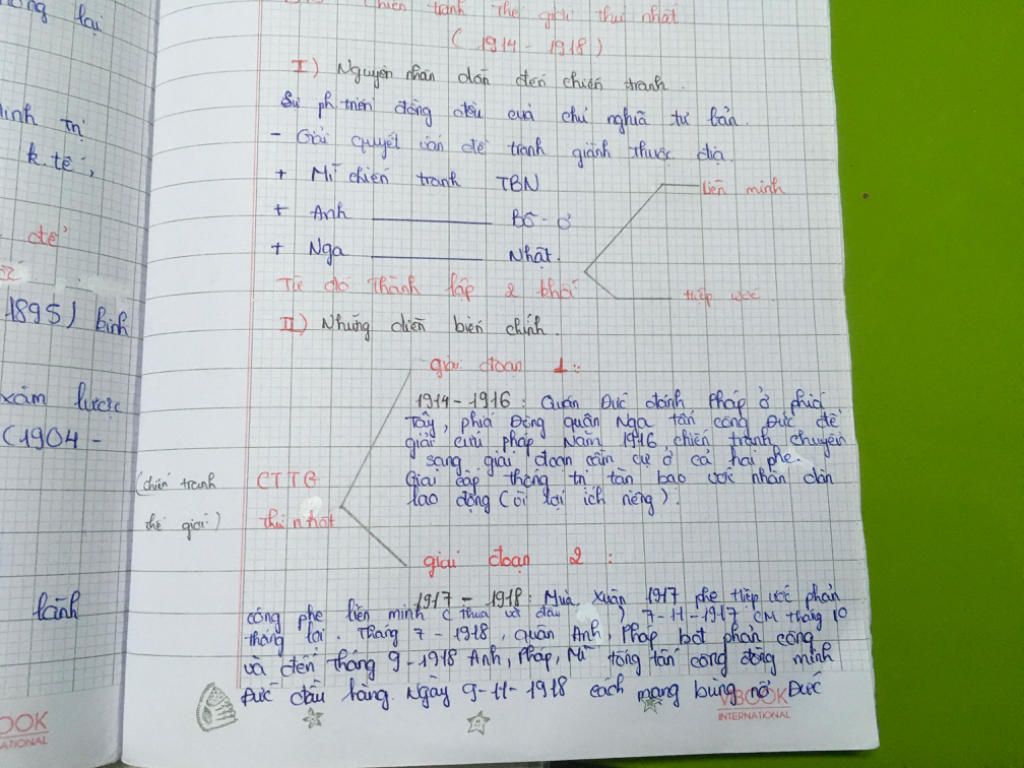 ông lại
linh trị
k.tế,
để
1895) Bình
xâm lược
(1904 -
lãnh
BOOK
NATIONAL
Chiến tranh thế giới thứ nhất
(1914 - 1918)
I) Nguyên nhân dẫn đến chiến tranh.
Sự ph triển đồng đều của chủ nghĩa tư bản.
- Giải quyết vấn đề tranh giành thuộc địa.
+ Mĩ chiến tranh TBN
+ Anh ——— BG - Ơ
+ Nga ——— Nhật.
liên minh
Từ đó thành lập 2 khối
tiếp ước
II) Những diễn biến chính.
giai đoạn 1:
1914-1916: Quân Đức đánh Pháp ở phía
Tây, phía Đông quân Nga tấn công Đức để
giải cứu pháp Năm 1916, chiến tranh chuyển
sang giai đoạn cầm cự ở cả hai phe.
Giai cấp thống trị tàn bạo với nhân dân
lao động (vì lợi ích riêng).
(chiến tranh
thế giới)
CTTG
thứ nhất
giai đoạn 2:
1917 - 1918: Mùa Xuân 1917 phe tiếp ước phản
công phe liên minh ( thua ) 7-11-1917 CM tháng 10
thắng lợi. Tháng 7-1918, quân Anh, Pháp bắt phản công
và đến tháng 9-1918 Anh, Pháp, Mĩ tổng tấn công đồng minh
Đức đầu hàng. Ngày 9-11-1918 cách mạng bùng nổ Đức
VIBOOK
INTERNATIONAL